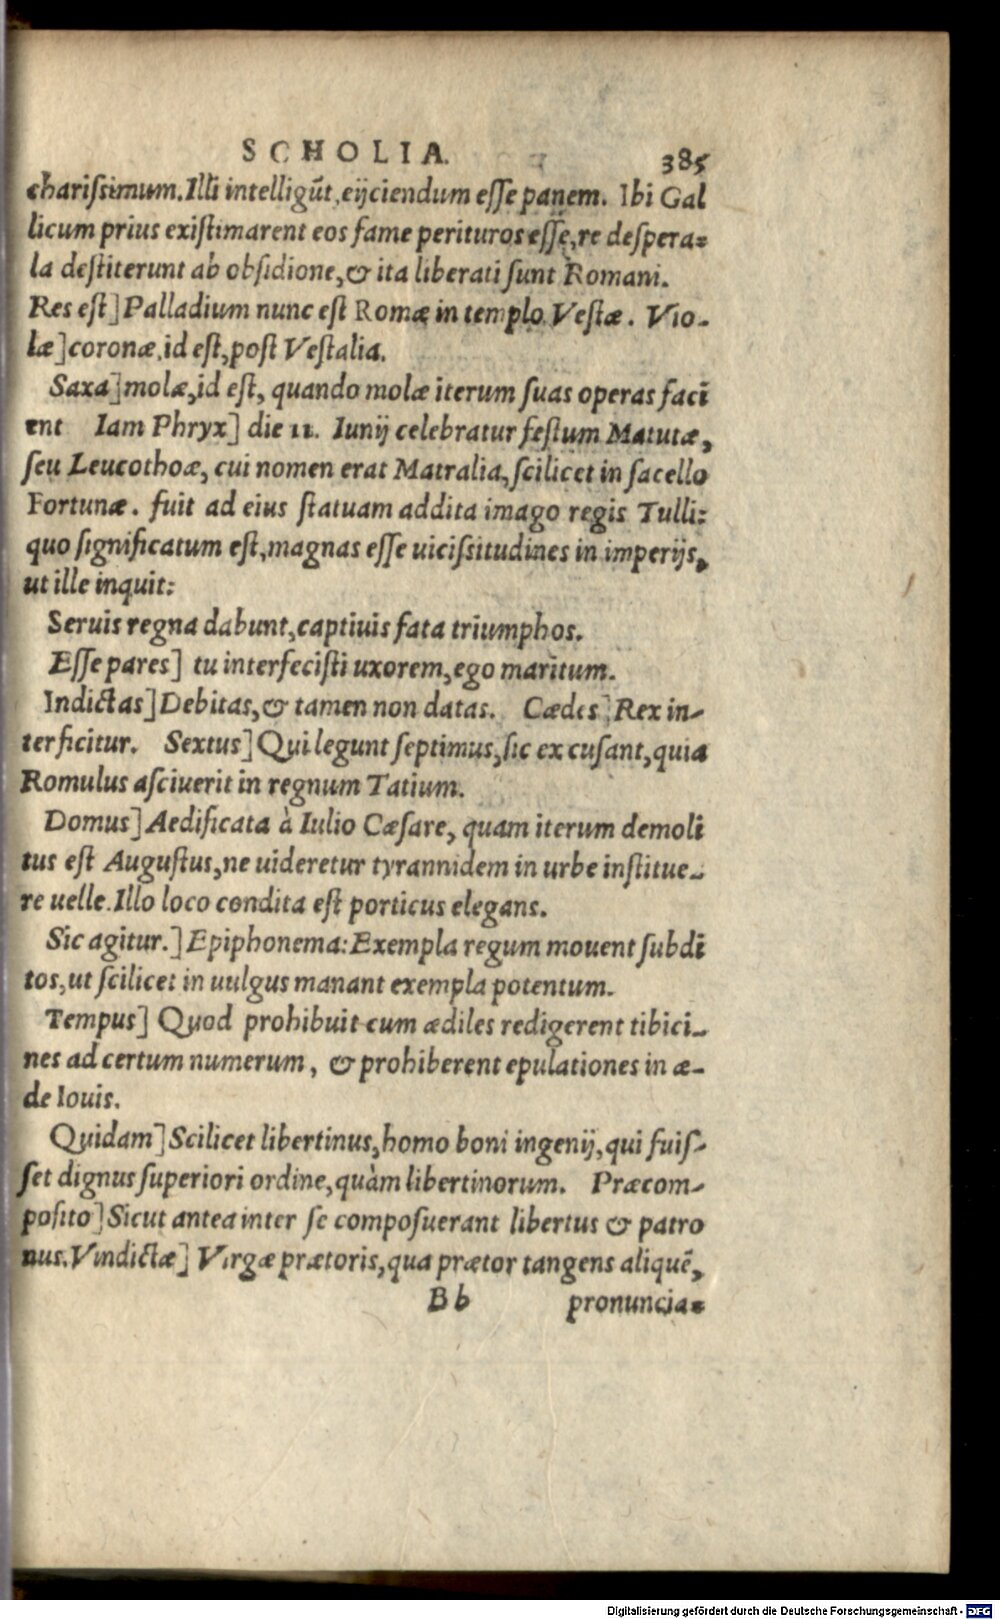 SCHOLIA. 385
charißimum. Illi intelligũt, eijciendum esse panem. Ibi Gal
licum prius existimarent eos fame perituros esse, re despera=
la destiterunt ab obsidione, & ita liberati sunt Romani.
Res est] Palladium nunc est Romæ in templo Vestæ. Vio-
læ] coronæ, id est, post Vestalia.
Saxa] molæ, id est, quando molæ iterum suas operas faci
ent Iam Phryx] die 11. Iunij celebratur festum Matutæ,
seu Leucothoæ, cui nomen erat Matralia, scilicet in sacello
Fortunæ. fuit ad eius statuam addita imago regis Tulli:
quo significatum est, magnas esse uicißitudines in imperijs,
ut ille inquit:
Seruis regna dabunt, captiuis fata triumphos.
Esse pares] tu interfecisti uxorem, ego maritum.
Indictas] Debitas, & tamen non datas. Cædes] Rex in-
terficitur. Sextus] Qui legunt septimus, sic excusant, quia
Romulus asciuerit in regnum Tatium.
Domus] Aedificata à Iulio Cæsare, quam iterum demoli
tus est Augustus, ne uideretur tyrannidem in urbe institue-
re uelle. Illo loco condita est porticus elegans.
Sic agitur.] Epiphonema: Exempla regum mouent subdi
tos, ut scilicet in uulgus manant exempla potentum.
Tempus] Quod prohibuit cum ædiles redigerent tibici-
nes ad certum numerum, & prohiberent epulationes in æ-
de Iouis.
Quidam] Scilicet libertinus, homo boni ingenij, qui fuis-
set dignus superiori ordine, quàm libertinorum. Præcom-
posito] Sicut antea inter se composuerant libertus & patro
nus. Vindictæ] Virgæ prætoris, qua prætor tangens aliquẽ,
Bb pronuncia=
Digitalisierung gefördert durch die Deutsche Forschungsgemeinschaft - DFG